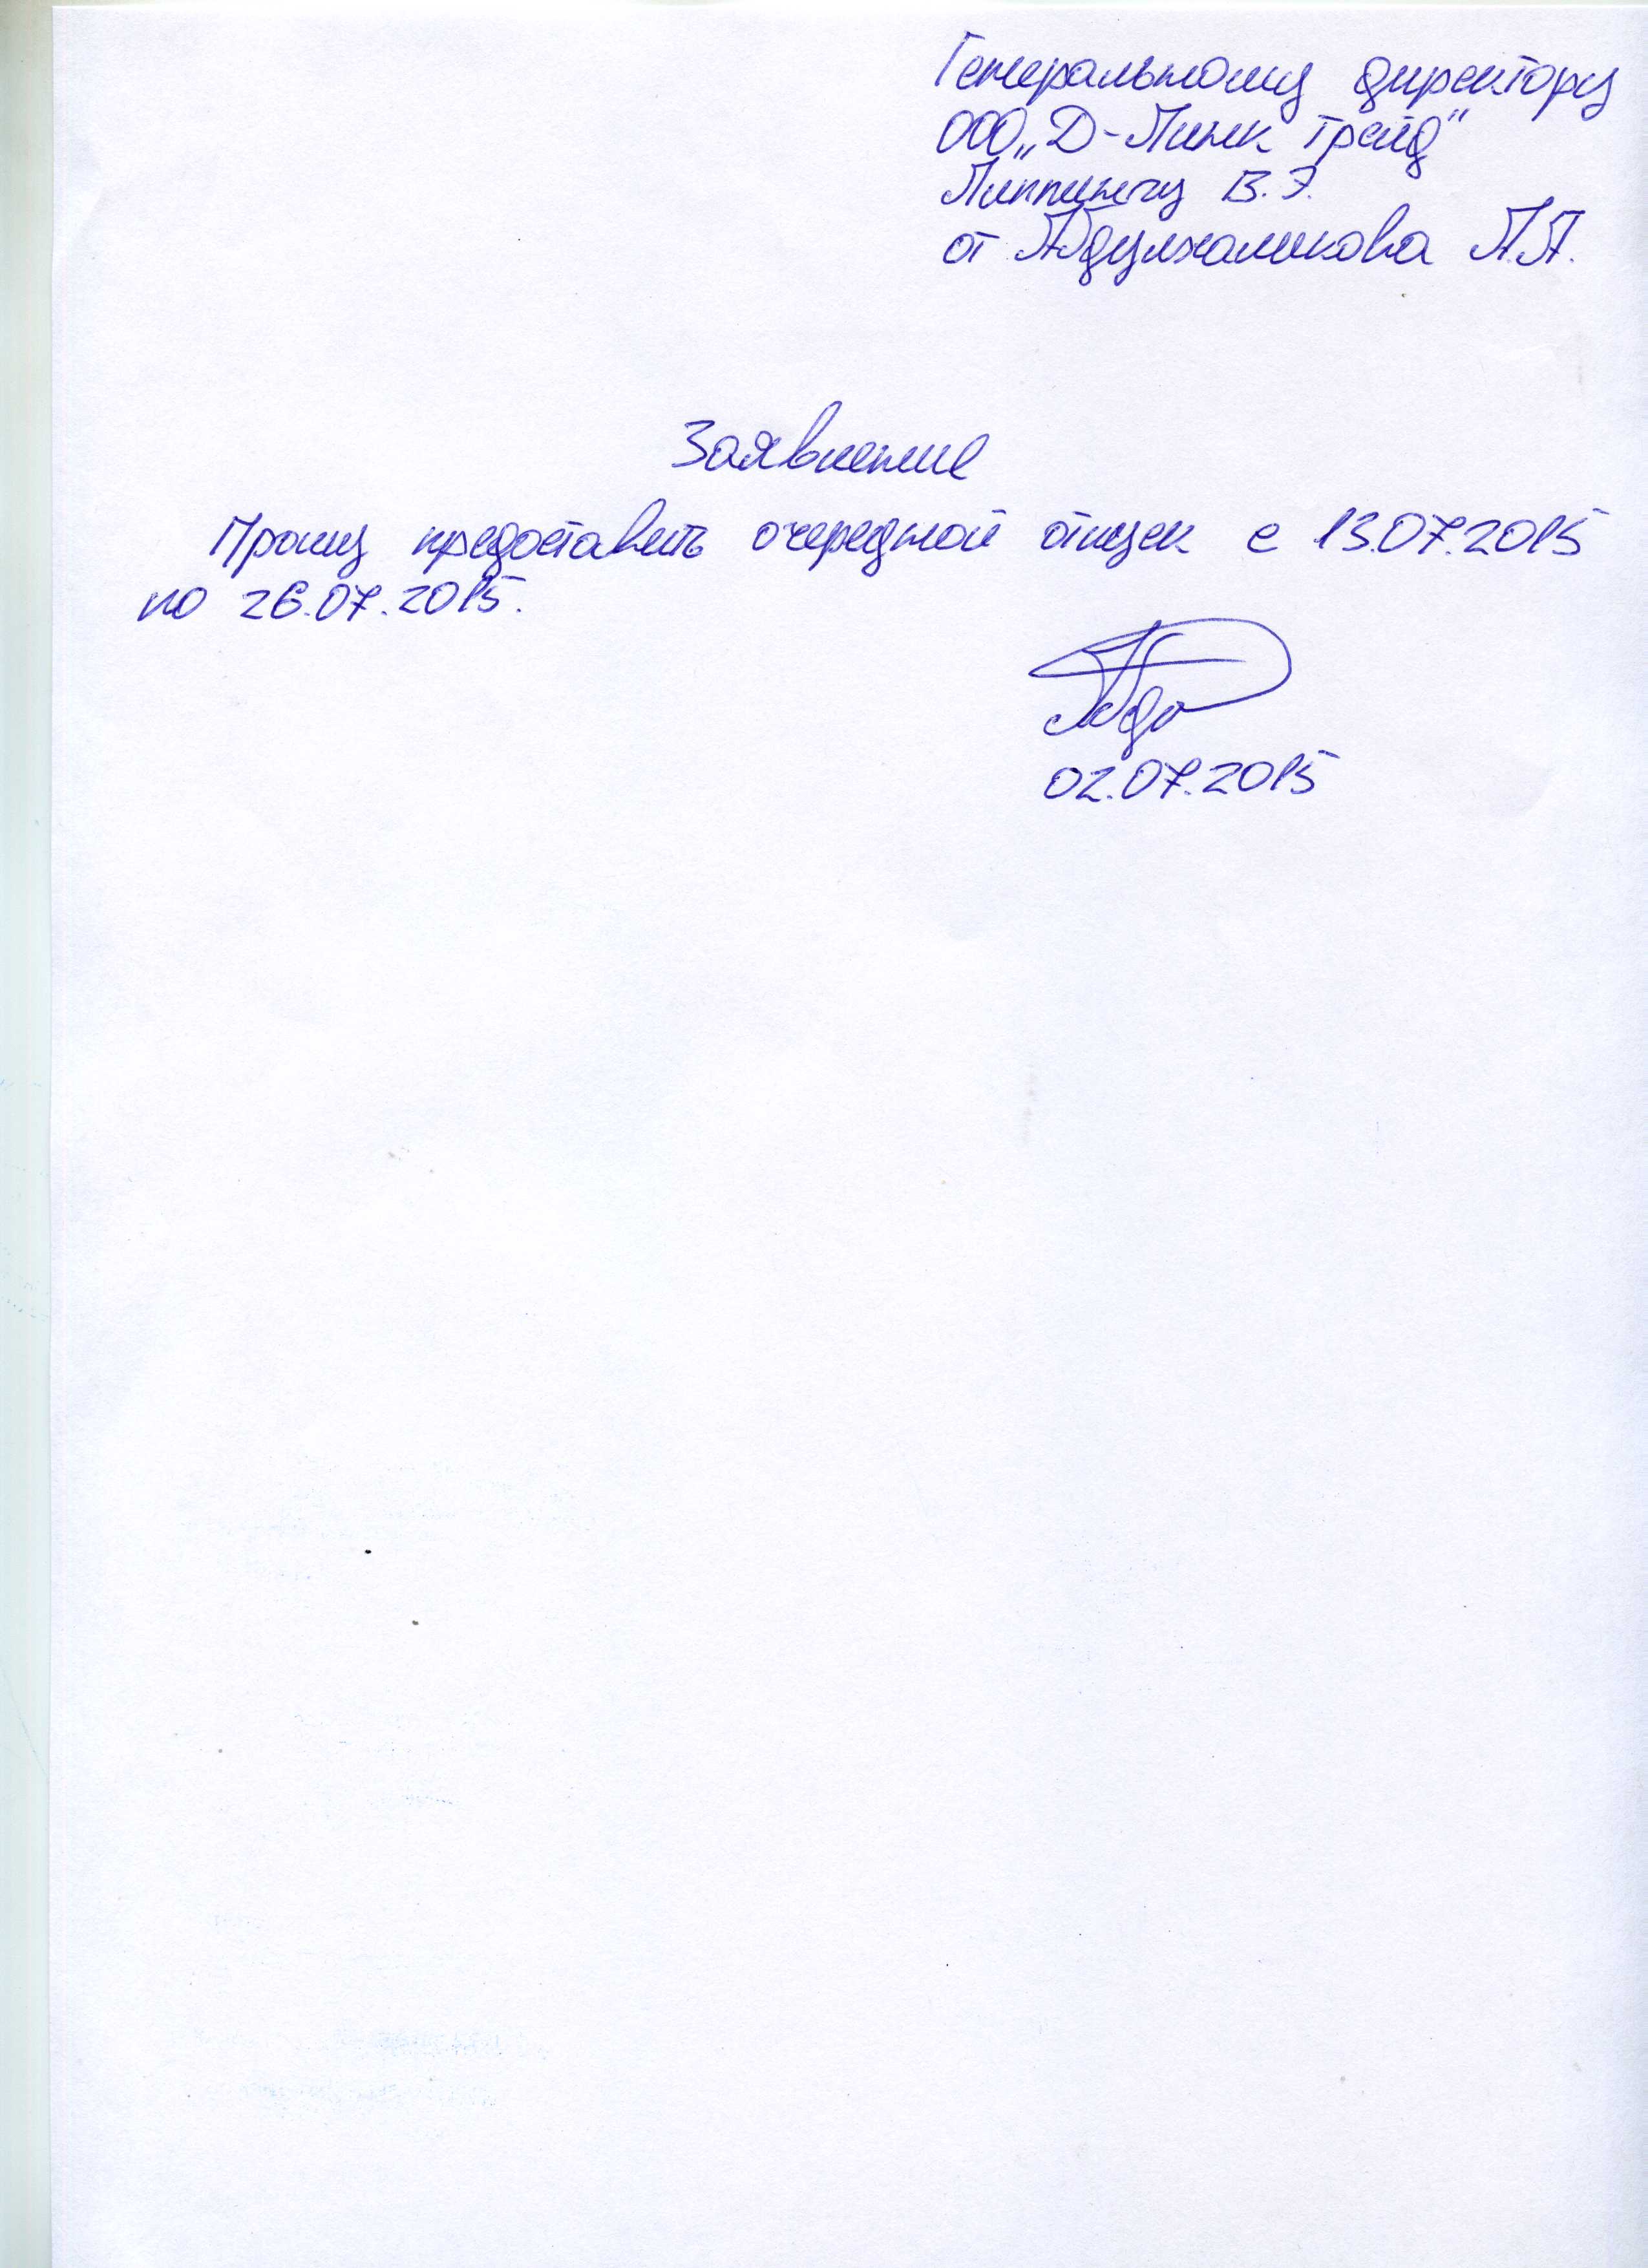 Генеральному директору
ООО „Д-Линк Трейд"
Липпингу В.Э.
от Абдулхаликова А.А.
Заявление
Прошу предоставить очередной отпуск с 13.07.2015
по 26.07.2015.
02.07.2015